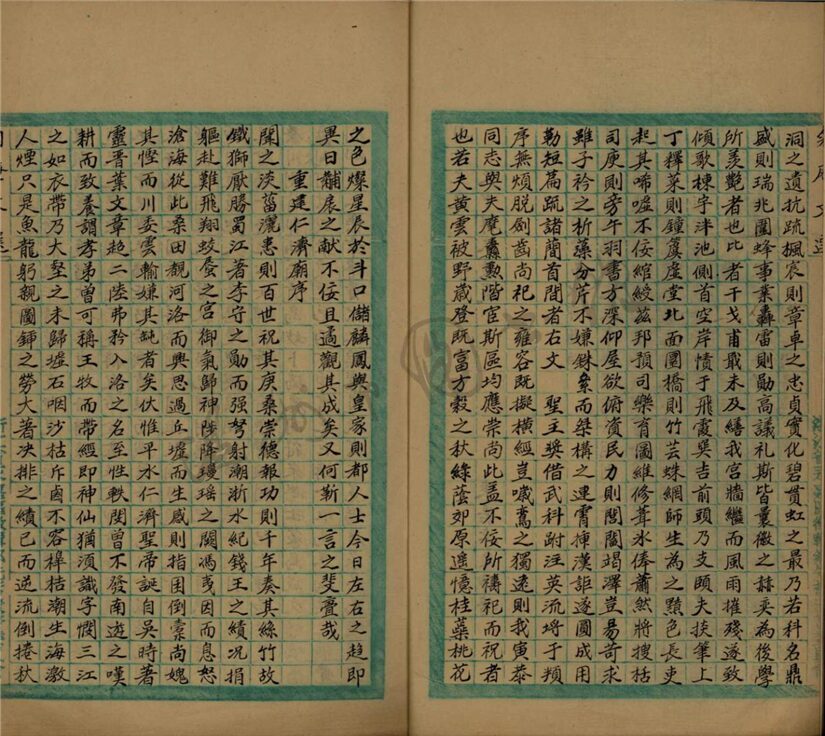 洞之遺抗疏楓宸則章卓之忠貞實化碧貫虹之最乃若科名鼎
盛則瑞兆園蜂事業轟雷則勛高議礼斯皆曩徽之赫奕為後學
所羨艷者也比者干戈甫戢未及繕我宮牆繼而風雨摧殘遂致
傾歌棟宇泮池側首空岸憤于飛霞巽吉前頭乃支頤夫扶筆上
丁釋菜則鐘虡虛堂北面圜橋則竹芸蛛網師生為之黯色長吏
起其唏噓不佞綰綬茲邦預司樂育圖維修葺氷俸蕭然將搜括
司庾則旁午羽書方深仰屋欲俯資民力則閭閻竭澤豈易苛求
雖子衿之析藻分芹不嫌銖絫而桀構之連霄抻漢詎遂圓成用
勒短篇疏諸簡首閒者右文 聖主奬借武科附注英流埒于頖
序無煩脫劍齒尚祀之雍容既擬橫經豈嘆蔦之獨遠則我寅恭
同志與夫麾纛勲階宦斯區均應崇尚此盖不佞所禱祀而祝者
也若夫黃雲被野歲登既富方穀之秋綠蔭郊原遥憶桂蘂桃花
之色燦星辰於斗口儲麟鳳與皇家則都人士今日左右之趋即
異日黼扆之献不佞且遹觀其成矣又何靳一言之斐亹哉
重建仁濟廟序
闻之决菑灑患則百世祝其庚桑崇德報功則千年奏其絲竹故
鐵獅厭勝蜀江著李守之勛而强弩射潮浙水紀錢王之績况捐
軀赴難飛翔蛟蜃之宮御氣歸神陟降瓊瑶之闕馮夷因而息怒
滄海從此桑田覩河洛而興思過丘墟而生感則指囷倒橐尚媿
其慳而川委雲輸嫌其𨓜者矣伏惟平水仁濟聖帝誕自吳時著
靈晋葉文章起二陸弗矜入洛之名至性軼閔曾不發南遊之嘆
耕而致養謂孝弟曾可稱王牧而帶經即神仙猶須識字憫三江
之如衣帶乃大壑之未歸墟石咽沙枯斥鹵不容槔桔潮生海激
人煙只是魚龍躬親圖鍤之勞大著决排之績已而逆流倒捲扶